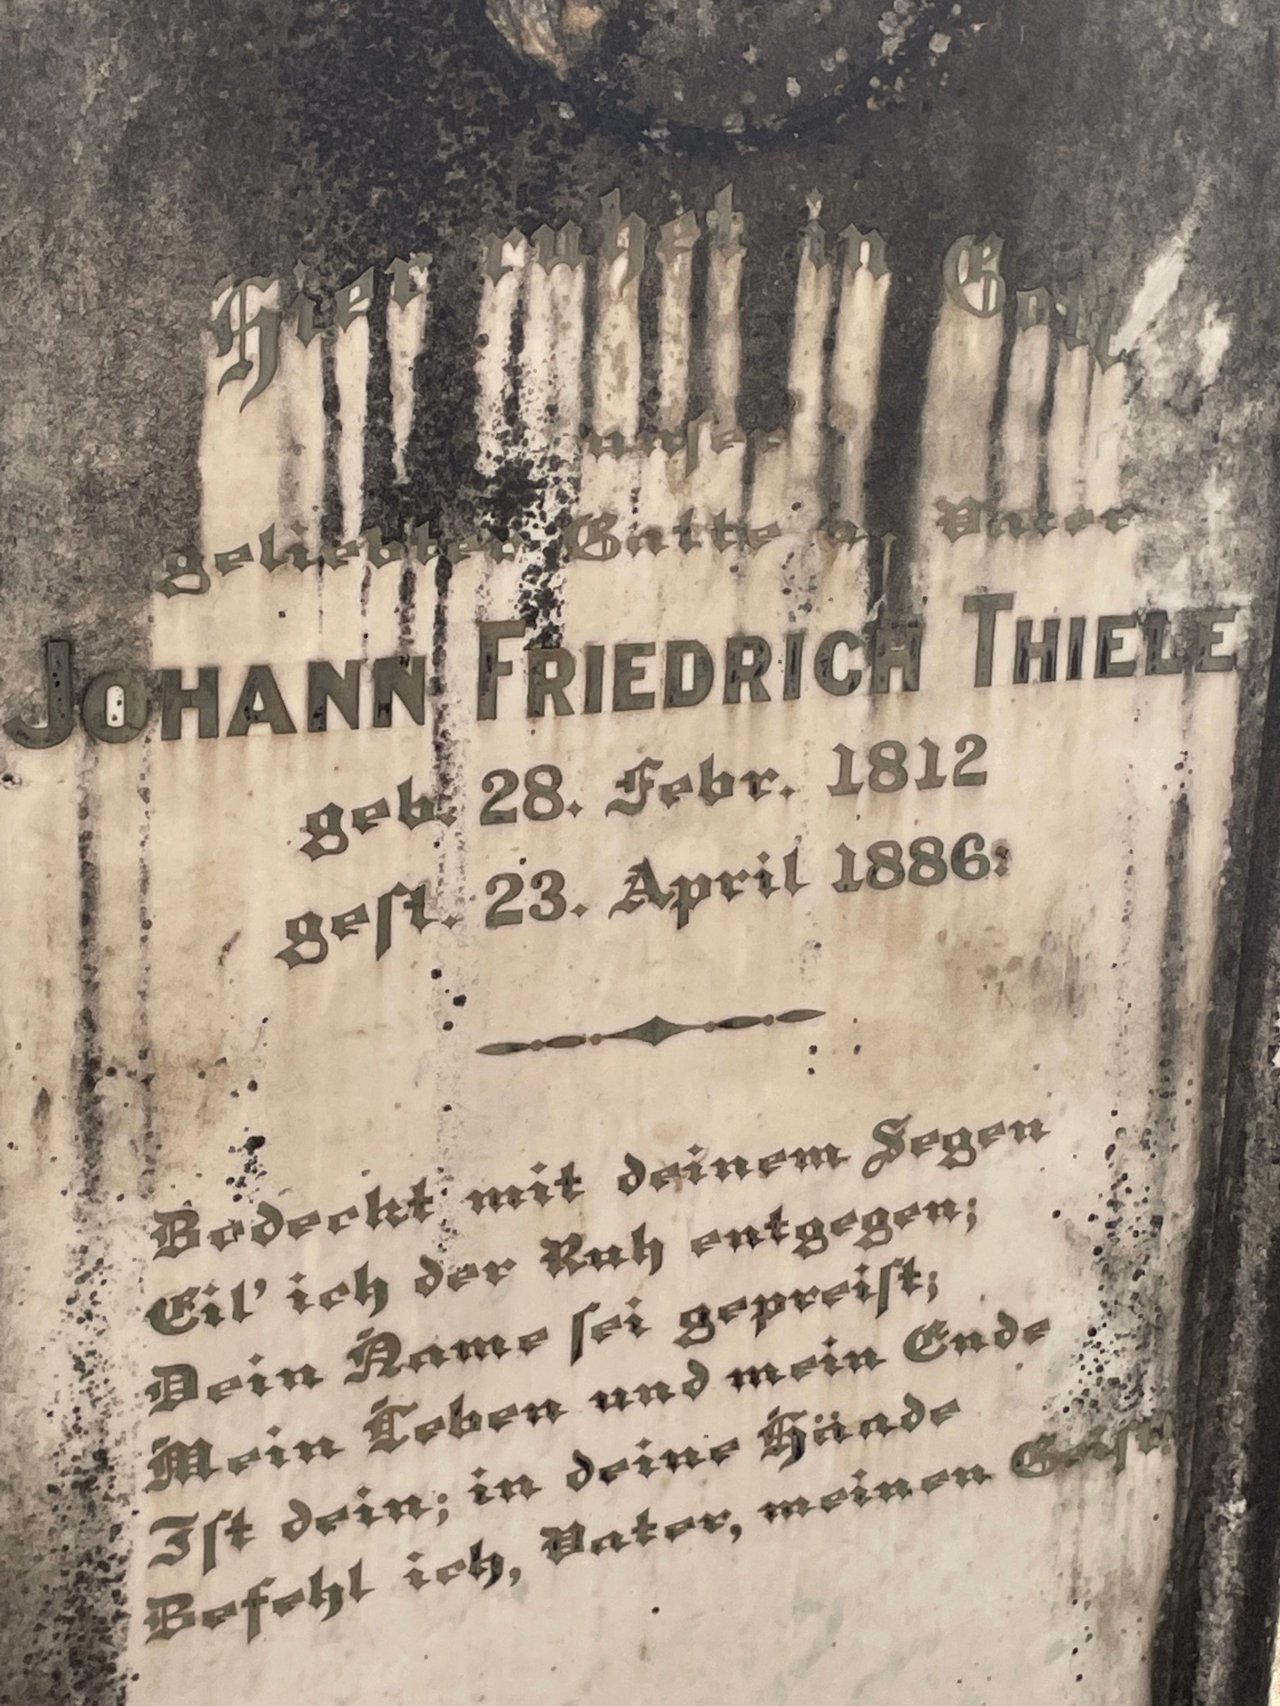 Hier ruhet in Gott
unser
geliebter Gatte u. Vater
JOHANN FRIEDRICH THIELE
geb. 28. Febr. 1812
gest. 23. April 1886.
Bedeckt mit deinem Segen
Eil' ich der Ruh entgegen;
Dein Name sei gepreist;
Mein Leben und mein Ende
Ist dein; in deine Hände
Befehl ich, Vater, meinen Geist.